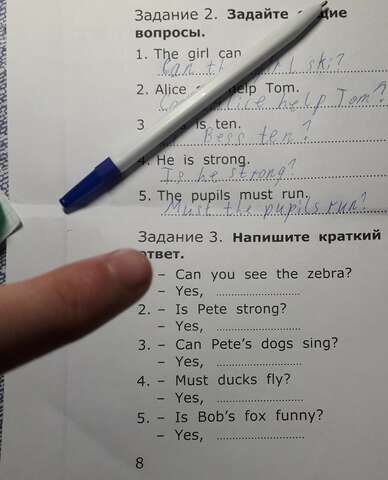 Задание 2. Задайте щие
вопросы.
1. The girl can
Can ski?
2. Alice help Tom.
help Tom?
3 is ten.
Bess ten?
4. He is strong.
Is he strong?
5. The pupils must run.
Must the pupils run?
Задание 3. Напишите краткий
ответ.
– Can you see the zebra?
– Yes, ........................
2. – Is Pete strong?
– Yes, ........................
3. – Can Pete's dogs sing?
– Yes, ........................
4. – Must ducks fly?
– Yes, ........................
5. – Is Bob's fox funny?
– Yes, ........................
8